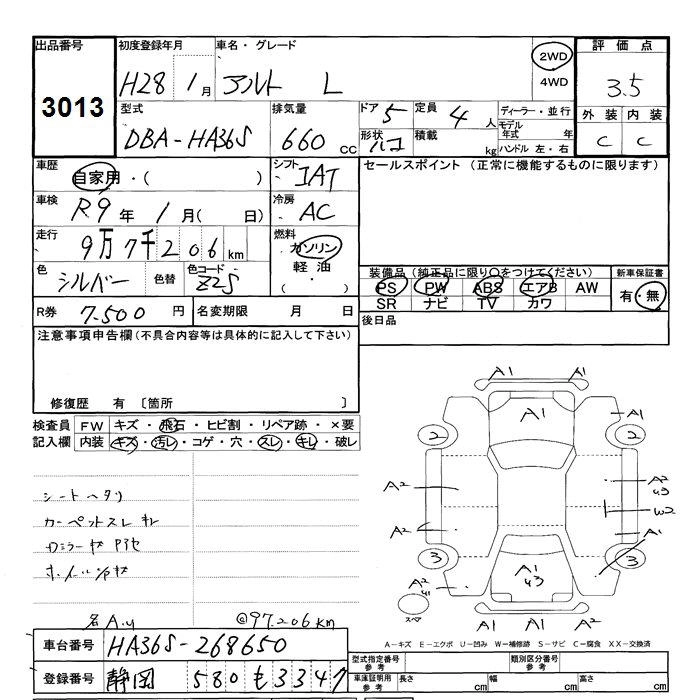 出品番号 初度登録年月 車名・グレード 評価点
3013 H28 1月 アルト L 2WD 4WD 3.5
型式 排気量 ドア 5 定員 4人 ディーラー・並行 外装 内装
DBA-HA36S 660cc 形状 ハコ 積載 kg モデル年式 年 ハンドル 左・右 C C
車歴 自家用・( ) シフト IAT セールスポイント (正常に機能するものに限ります)
車検 R9年 1月( 日) 冷房 AC
走行 9万7千206km 燃料 ガソリン 軽油 ・( )
色 シルバー 色替 色コード Z2S 装備品 (純正品に限り〇をつけてください) 新車保証書
PS PW ABS エアB AW 有・無
SR ナビ TV カワ
R券 7.500円 名変期限 月 日 後日品
注意事項申告欄(不具合内容等は具体的に記入して下さい)
修復歴 有 〔箇所 〕
検査員 FW キズ・飛石・ヒビ割・リペア跡・×要
記入欄 内装 キズ・汚レ・コゲ・穴・スレ・キレ・破レ
シートヘタリ
カーペットスレ キレ
A1 A1
A1 A1
2 2
A2 A2
U3
W2
A2 A1
3 3
A1
U3
A2
スペア
A1 A1 A1
@97.206km
A-キズ E-エクボ U-凹み W-補修跡 S-サビ C-腐食 XX-交換済
車台番号 HA36S-268650 型式指定番号 参考 類別区分番号 参考
登録番号 静岡 580 も 3347 車庫証明用 参考 長さ cm 幅 cm 高さ cm